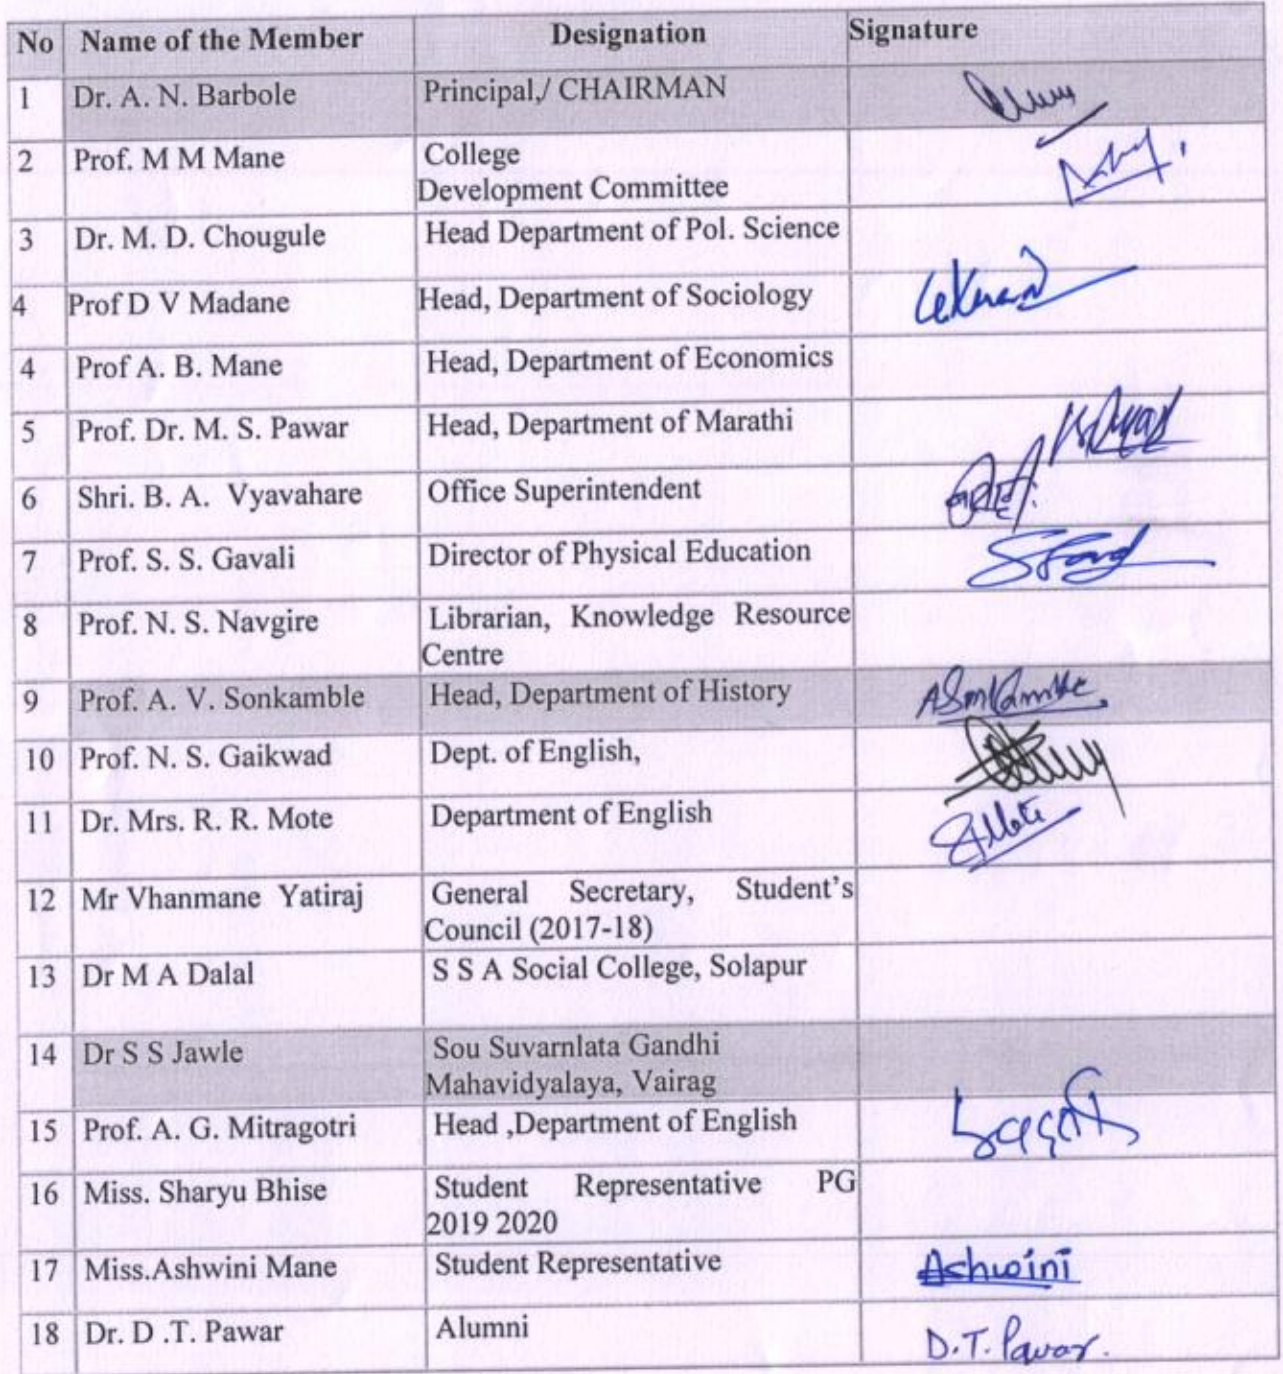 No Name of the Member Designation Signature
1 Dr. A. N. Barbole Principal,/ CHAIRMAN
2 Prof. M M Mane College
Development Committee
3 Dr. M. D. Chougule Head Department of Pol. Science
4 Prof D V Madane Head, Department of Sociology
4 Prof A. B. Mane Head, Department of Economics
5 Prof. Dr. M. S. Pawar Head, Department of Marathi
6 Shri. B. A. Vyavahare Office Superintendent
7 Prof. S. S. Gavali Director of Physical Education
8 Prof. N. S. Navgire Librarian, Knowledge Resource
Centre
9 Prof. A. V. Sonkamble Head, Department of History ASonkamble
10 Prof. N. S. Gaikwad Dept. of English,
11 Dr. Mrs. R. R. Mote Department of English
12 Mr Vhanmane Yatiraj General Secretary, Student's
Council (2017-18)
13 Dr M A Dalal S S A Social College, Solapur
14 Dr S S Jawle Sou Suvarnlata Gandhi
Mahavidyalaya, Vairag
15 Prof. A. G. Mitragotri Head ,Department of English
16 Miss. Sharyu Bhise Student Representative PG
2019 2020
17 Miss.Ashwini Mane Student Representative Ashwini
18 Dr. D .T. Pawar Alumni D.T. Pawar.